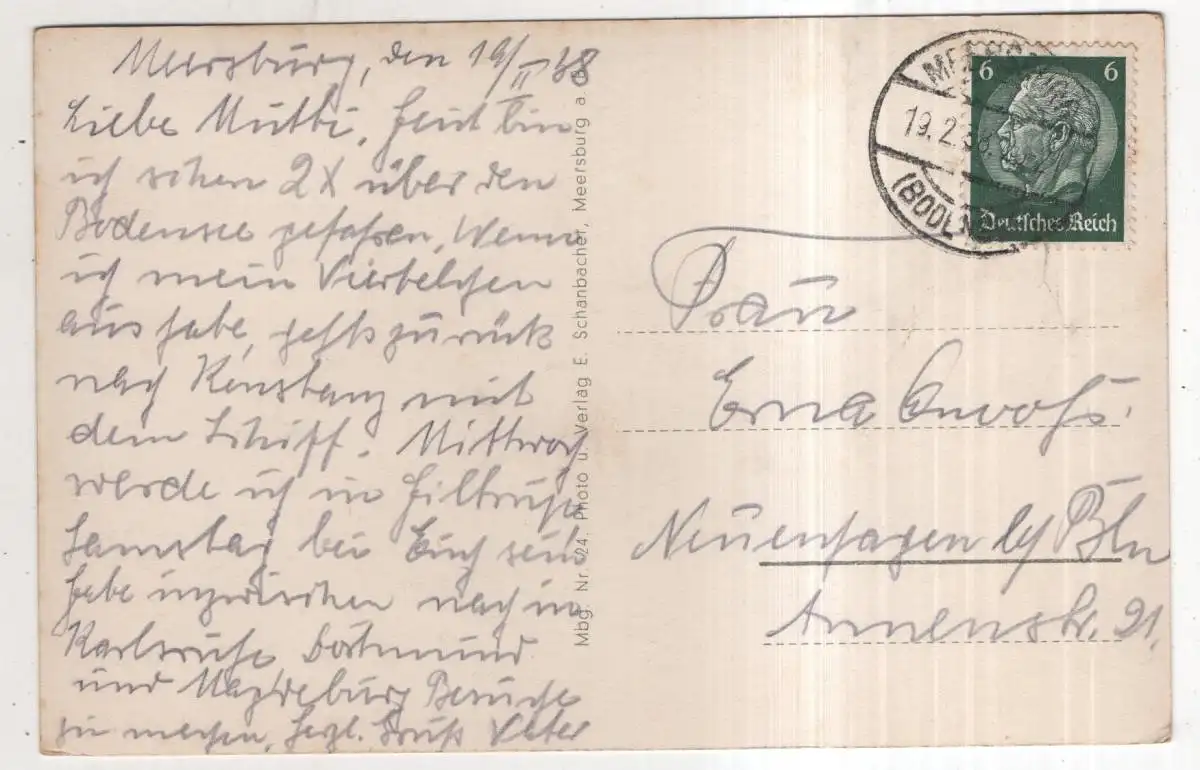 Meersburg, den 19/II 38
Liebe Mutti, heut bin
ich schon 2x über den
Bodensee gefahren. Wenn
ich mein Viertelchen
aus habe, gehts zurück
nach Konstanz mit
dem Schiff. Mittwoch
werde ich in
Samstag bei Euch sein
habe inzwischen noch in
Karlsruhe, Dortmund
und Magdeburg Besuche
zu machen. Herzl. Gruß Vater
Mbg. Nr. 24. Photo u. Verlag E. Schanbacher, Meersburg a. B.
19.2.38
(BODE
6 6
Deutsches Reich
Frau
Erna
Neuenhagen b/ Bln
Annenstr. 21.